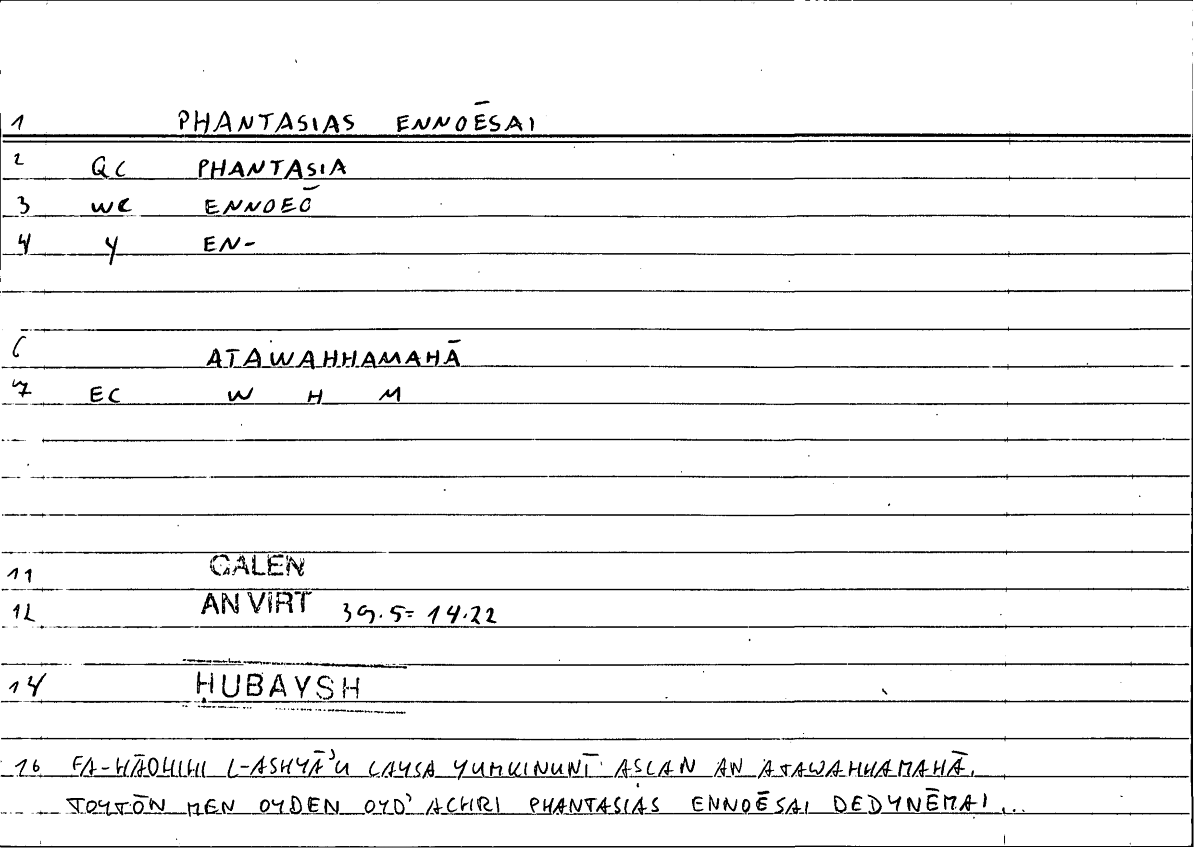 1 PHANTASIAS ENNOĒSAI
2 QC PHANTASIA
3 WC ENNOEŌ
4 Y EN-
6 ATAWAHHAMAHĀ
7 EC W H M
11 GALEN
12 AN VIRT 39.5= 14.22
14 ḤUBAYSH
16 FA-HĀDHIHI L-ASHYĀ'U LAYSA YUMKINUNĪ ASLAN AN ATAWAHHAMAHĀ.
TOYTŌN MEN OYDEN OYD' ACHRI PHANTASIAS ENNOĒSAI DEDYNĒMAI...